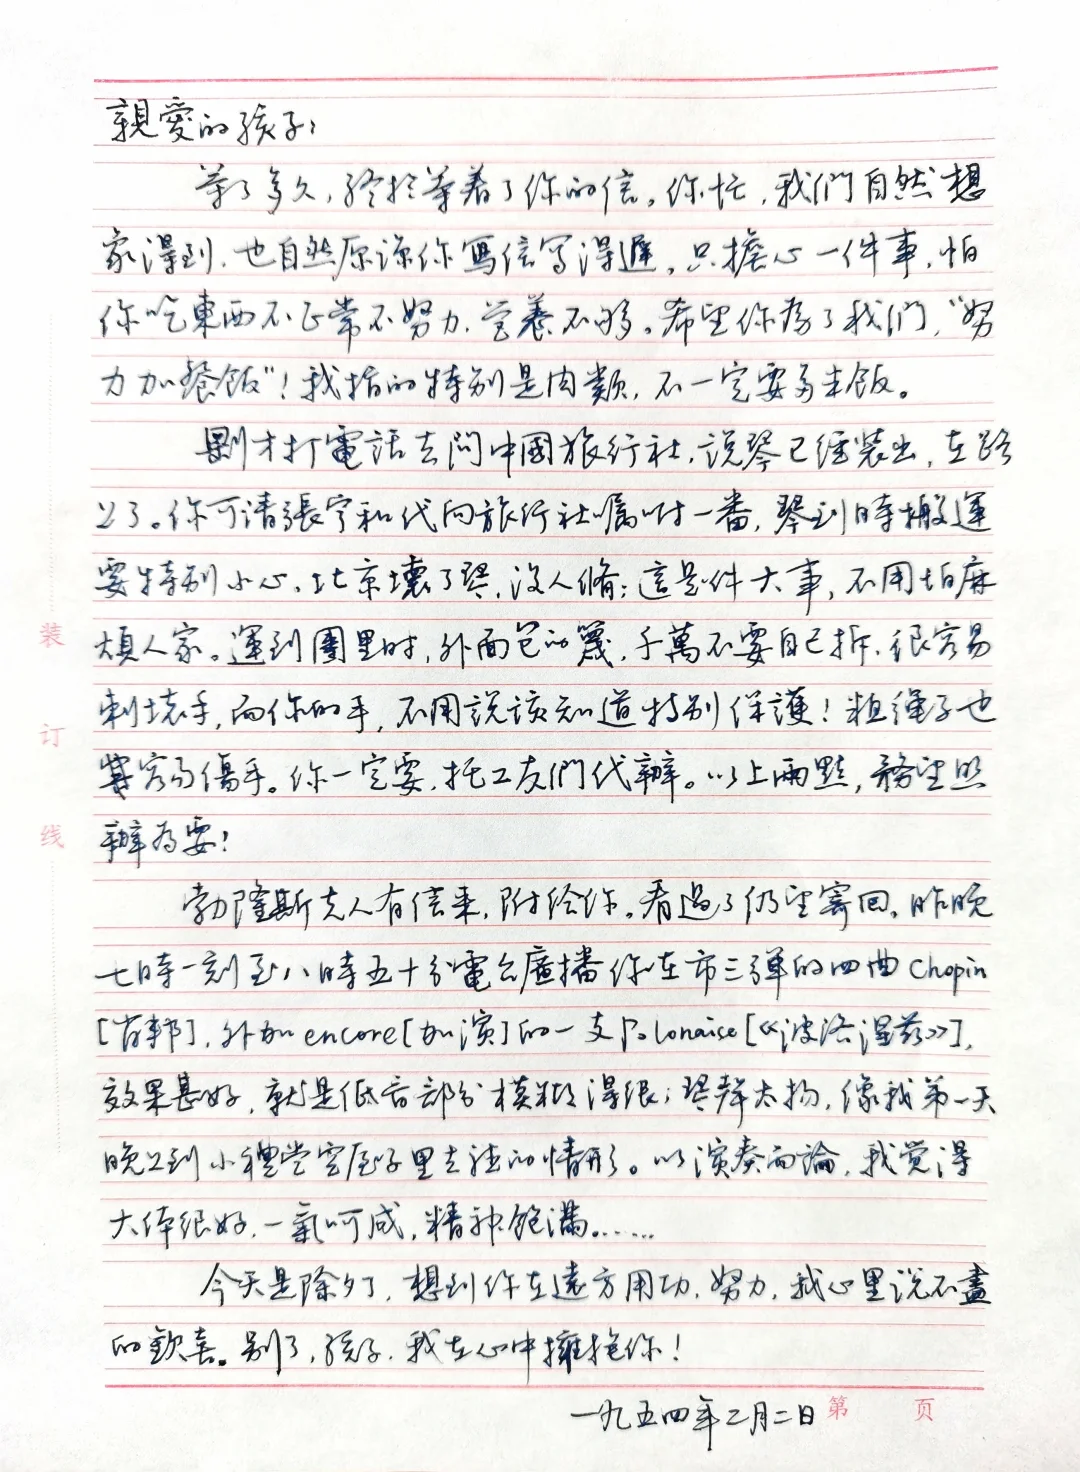 親愛的孩子：
等了多久，終於等着了你的信。你忙，我們自然想
象得到，也自然原諒你寫信寫得遲。只擔心一件事，怕
你吃東西不正常不努力，營養不够。希望你為了我們，“努
力加餐飯”！我指的特别是肉類，不一定要多米飯。
剛才打電話去問中國旅行社，説琴已經裝出，在路
上了。你可請張宁和代向旅行社囑咐一番，琴到時搬運
要特别小心。北京壞了琴，没人脩；這是件大事，不用怕麻
煩人家。運到團里時，外面包的篾，千萬不要自己拆，很容易
刺壞手，而你的手，不用説該知道特别保護！粗繩子也
容易傷手。你一定要，托工友們代辦。以上兩點，務望照
辦為要！
勃隆斯丹夫人有信來，附给你。看過了仍望寄回。昨晚
七時一刻至八時五十分電台廣播你在市三弹的四曲Chopin
[肖邦]，外加encore[加演]的一支Polonaise[《波洛涅兹》]，
效果甚好，就是低音部分模糊得很；琴聲太揚，像我第一天
晚上到小禮堂空屋子里去聽的情形。以演奏而論，我覺得
大体很好，一氣呵成，精神飽滿。……
今天是除夕了，想到你在遠方用功，努力，我心里说不盡
的歡喜。别了，孩子，我在心中擁抱你！
一九五四年二月二日
第 页
装
订
线